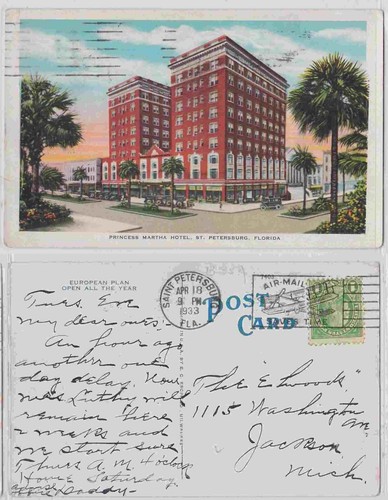 PRINCESS MARTHA HOTEL, ST. PETERSBURG, FLORIDA
EUROPEAN PLAN
OPEN ALL THE YEAR
SAINT PETERSBURG
APR 18
9 PM
1933
FLA.
AIR-MAIL
SAVES TIME
POST
CARD
Tues. Eve
My dear ones:
An hour ago
another
day delay.
will
remain there
2 weeks and
we start sure
Thurs A.M. 4 o'clock
Home Saturday
Daddy-
"The Elwoods"
1115 Washington Av
Jackson
Mich.